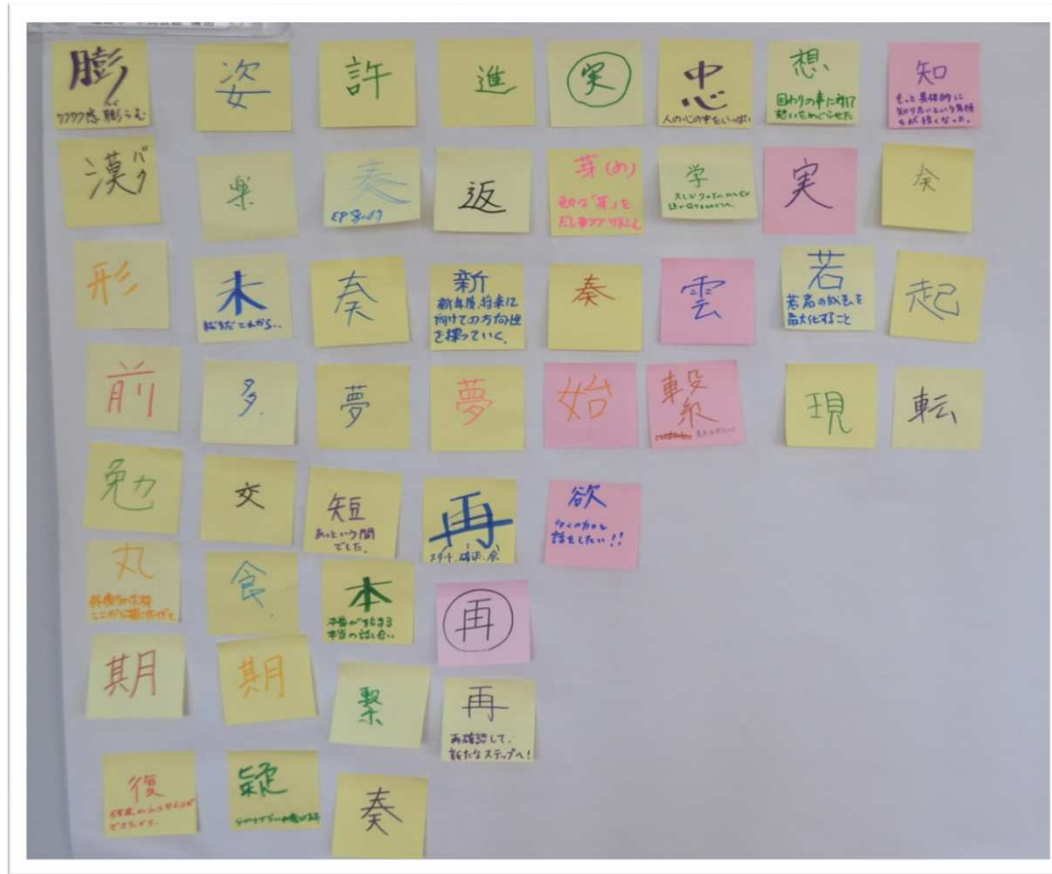 膨
ワクワク感、膨らむ
姿
許
進
実
忠
人の心の中をいっぱい
想
回りの事に対して
想いをめぐらせた
知
もっと具体的に
知りたいという気持
ちが強くなった。
漠 バク
楽
奏
返
芽(め)
学
実
奏
形
未
まだまだこれから..
奏
新
新年度、将来に
向けての方向性
を探っていく。
奏
雲
若
若者の於を
最大化すること
起
前
多
夢
夢
始
繋
現
転
勉
交
短
あっという間
でした。
再
スタート、確認、会
欲
多くの方と
話をしたい!!
丸
食
本
本番が始まる
本当の話し合い
再
期
期
繋
再
再確認して、
新たなステップへ!
復
疑
奏